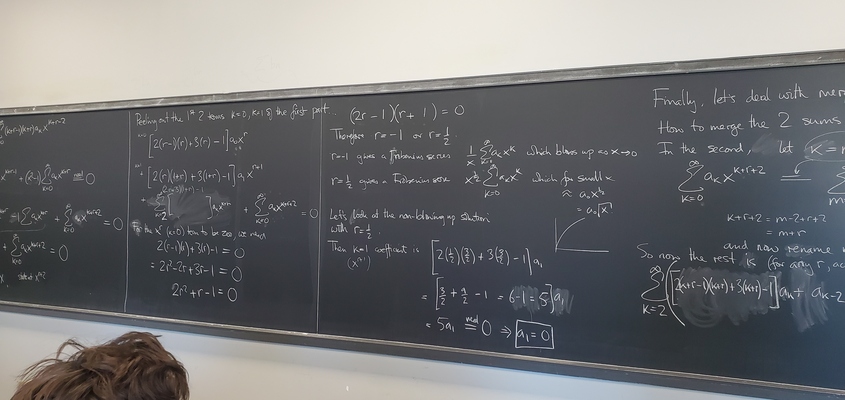 (k+r-1)(k+r)aₖx^{k+r-2}
= 0
Peeling out the 1st 2 terms k=0, k=1 of the first part...
[2(r-1)(r)+3(r)-1]a₀x^r
[2(r)(1+r)+3(1+r)-1]a₁x^{r+1}
+ ∑ [ ] aₖx^{k+r} + ∑_{k=0}^{∞} aₖx^{k+r+2} = 0
For the x^r (k=0) term to be zero, we need
2(r-1)(r)+3(r)-1=0
= 2r²-2r+3r-1=0
2r²+r-1=0
(2r-1)(r+1)=0
Therefore r=-1 or r=½.
r=-1 gives a Frobenius series 1/x ∑_{k=0}^{∞} aₖx^k which blows up as x→0
r=½ gives a Frobenius series x^{½} ∑_{k=0}^{∞} aₖx^k which for small x
≈ a₀x^{½}
= a₀√x
Let's look at the non-blowing up solution:
with r=½.
Then k=1 coefficient is [2(½)(3/2)+3(3/2)-1]a₁
(x^{r+1})
= [3/2 + 9/2 - 1 = 6-1=5]a₁
= 5a₁ =^{need} 0 ⇒ a₁=0
Finally, let's deal with
How to merge the 2 sums
In the second, let k=
∑_{k=0}^{∞} aₖx^{k+r+2} = ∑
k+r+2 = m-2+r+2
= m+r
and now rename
So now the rest is (for any r,
∑_{k=2}^{∞} ([2(k+r-1)(k+r)+3(k+r)-1]aₖ + a_{k-2}